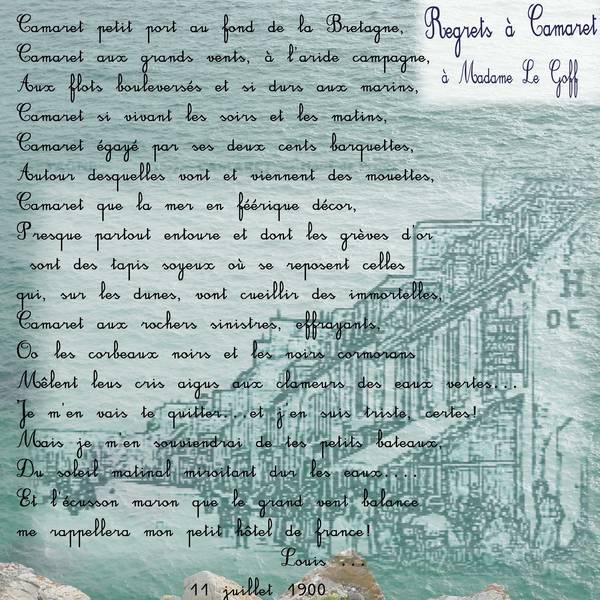 Regrets à Camaret
à Madame Le Goff
Camaret petit port au fond de la Bretagne,
Camaret aux grands vents, à l'aride campagne,
Aux flots bouleversés et si durs aux marins,
Camaret si vivant les soirs et les matins,
Camaret égayé par ses deux cents barquettes,
Autour desquelles vont et viennent des mouettes,
Camaret que la mer en féérique décor,
Presque partout entoure et dont les grèves d'or
sont des tapis soyeux où se reposent celles
qui, sur les dunes, vont cueillir des immortelles,
Camaret aux rochers sinistres, effrayants,
Oo les corbeaux noirs et les noirs cormorans
Mêlent leus cris aigus aux clameurs des eaux vertes...
Je m'en vais te quitter...et j'en suis triste, certes!
Mais je m'en souviendrai de tes petits bateaux,
Du soleil matinal miroitant dur les eaux....
Et l'écusson maron que le grand vent balance
me rappellera mon petit hôtel de france!
Louis ...
11 juillet 1900
H
DE